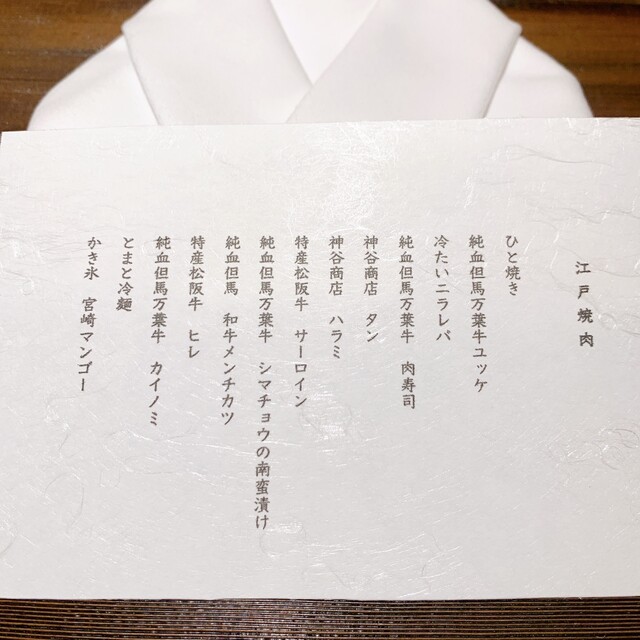 江戸焼肉
ひと焼き
純血但馬万葉牛ユッケ
冷たいニラレバ
純血但馬万葉牛 肉寿司
神谷商店 タン
神谷商店 ハラミ
特産松阪牛 サーロイン
純血但馬万葉牛 シマチョウの南蛮漬け
純血但馬 和牛メンチカツ
特産松阪牛 ヒレ
純血但馬万葉牛 カイノミ
とまと冷麺
かき氷 宮崎マンゴー